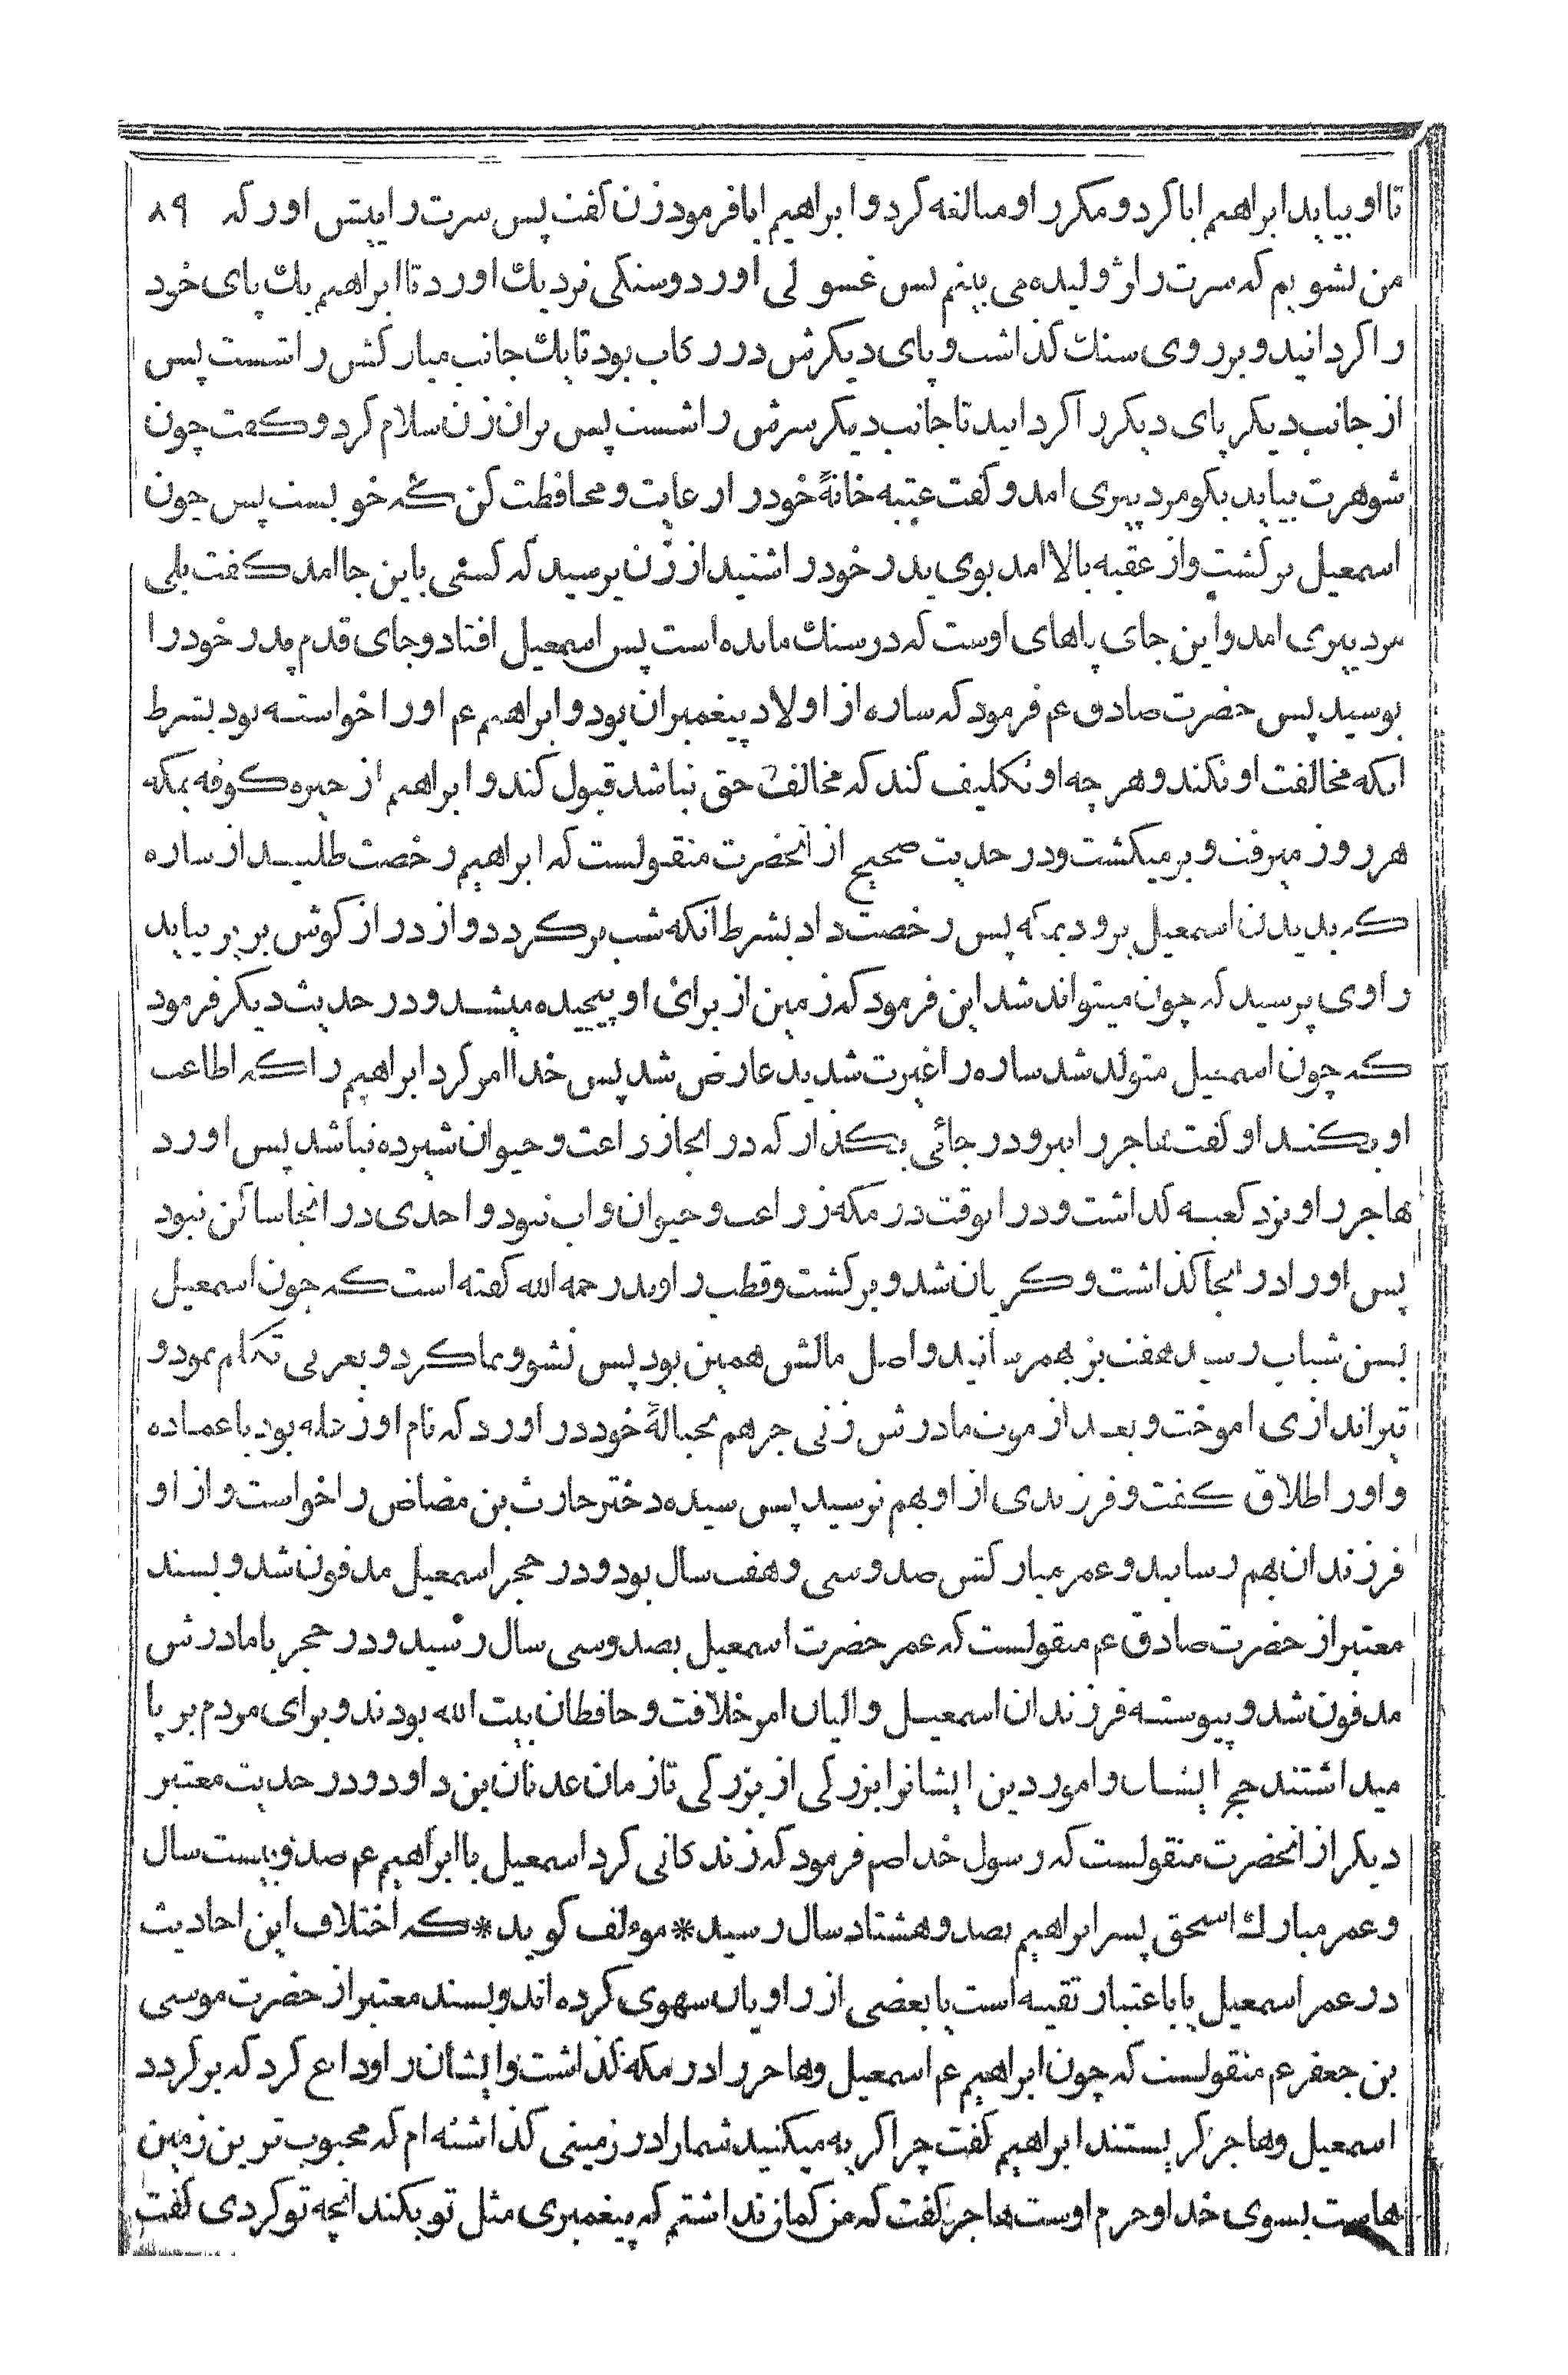 تا او بیاید ابراهیم ابا کرد و مکرر او مبالغه کرد و ابراهیم ابا فرمود زن کفت پس سرت را پیش اور که ۸۹
من بشویم که سرت را ژولیده می بینم پس غسولی اورد و سنکی نزدیك اورد تا ابراهیم یك پای خود
را کردانید و بر روی سنك کذاشت و پای دیکرش در رکاب بود تا یك جانب مبارکش را شست پس
از جانب دیکر پای دیکر را کردانید تا جانب دیکر سرش را شست پس بران زن سلام کرد و کفت چون
شوهرت بیاید بکو مرد پیری امد و کفت عتبه خانهٔ خود را رعایت و محافظت کن که خوبست پس چون
اسمعیل برکشت و از عقبه بالا امد بوی پدر خود را شنید از زن پرسید که کسی باین جا امد کفت بلی
مرد پیری امد و این جای پاهای اوست که در سنك مانده است پس اسمعیل افتاد و جای قدم پدر خود را
بوسید پس حضرت صادق عم فرمود که ساره از اولاد پیغمبران بود و ابراهیم عم او را خواسته بود بشرط
انکه مخالفت او نکند و هر چه او تکلیف کند که مخالف حق نباشد قبول کند و ابراهیم از حیره کوفه بمکه
هر روز میرفت و بر میکشت و در حدیت صحیح از انحضرت منقولست که ابراهیم رخصت طلبید از ساره
که بدیدن اسمعیل برود بمکه پس رخصت داد بشرط انکه شب برکردد و از دراز کوش بزیر نیاید
راوی پرسید که چون میتواند شد این فرمود که زمین از برای او پیچیده میشد و در حدیث دیکر فرمود
که چون اسمعیل متولد شد ساره را غیرت شدید عارض شد پس خدا امر کرد ابراهیم را که اطاعت
او بکند او کفت هاجر را ببر و در جائی بکذار که در انجا زراعت و حیوان شیرده نباشد پس اورد
هاجر را و نزد کعبه کذاشت و در انوقت در مکه زراعت و حیوان و اب نبود و احدی در انجا ساکن نبود
پس او را در انجا کذاشت و کریان شد و برکشت و قطب راوندر حمه الله کفته است که چون اسمعیل
بسن شباب رسید هفت بز بهمرسانید و اصل مالش همین بود پس نشو و نما کرد و بعربی تکلم نمود و
تیراندازی اموخت و بعد از موت مادرش زنی جرهم بحبالهٔ خود در اورد که نام او زعله بود یا عماده
و او را طلاق کفت و فرزندی از او بهم نرسید پس سیده دختر حارث بن مضاض را خواست و از او
فرزندان بهم رسانید و عمر مبارکش صد و سی و هفت سال بود و در حجر اسمعیل مدفون شد و بسند
معتبر از حضرت صادق عم منقولست که عمر حضرت اسمعیل بصد و سی سال رسید و در حجر با مادرش
مدفون شد و پیوسته فرزندان اسمعیل والیان امر خلافت و حافطان بیت الله بودند و برای مردم بر پا
میداشتند حج ایشان و امور دین ایشانرا بزرکی از بزرکی تا زمان عدنان بن داود و در حدیت معتبر
دیکر از انحضرت منقولست که رسول خدا صم فرمود که زندکانی کرد اسمعیل با ابراهیم عم صد و بیست سال
و عمر مبارك اسحق پسر ابراهیم بصد و هشتاد سال رسید * موءلف کوید * که اختلاف این احادیث
در عمر اسمعیل یا باعتبار تقیه است یا بعضی از راویان سهوی کرده اند و بسند معتبر از حضرت موسی
بن جعفر عم منقولست که چون ابراهیم عم اسمعیل و هاجر را در مکه کذاشت و ایشان را وداع کرد که برکردد
اسمعیل و هاجر کریستند ابراهیم کفت چرا کریه میکنید شما را در زمینی کذاشته ام که محبوب ترین زمین
هاست بسوی خدا و حرم اوست هاجر کفت که من کمان نداشتم که پیغمبری مثل تو بکند انچه تو کردی کفت